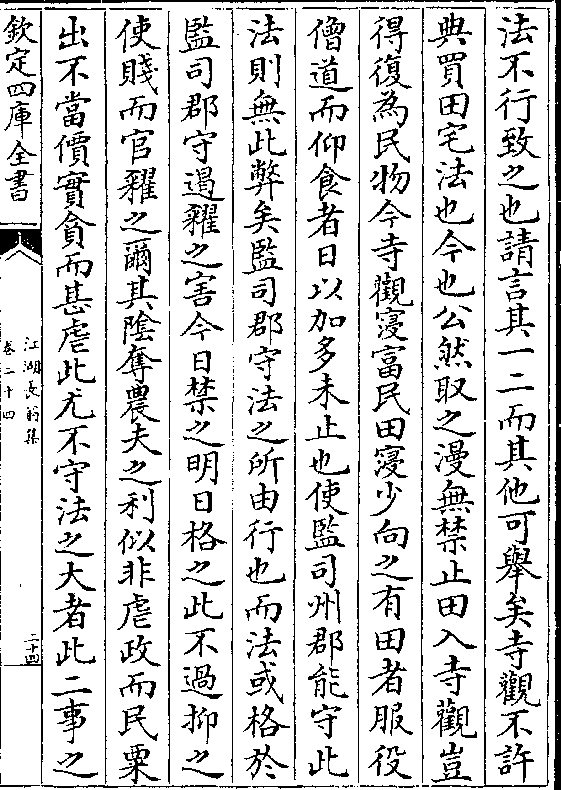 法不行致之也請言其一二而其他可舉矣寺觀不許
典買田宅法也今也公然取之漫無禁止田入寺觀豈
得復為民物今寺觀寖富民田寖少向之有田者服役
僧道而仰食者日以加多未止也使監司州郡能守此
法則無此弊矣監司郡守法之所由行也而法或格於
監司郡守遏糴之害今日禁之明日格之此不過抑之
使賤而官糴之爾其陰奪農夫之利似非虐政而民粟
出不當價實貪而甚虐此尤不守法之大者此二事之
欽定四庫全書
江湖長翁集
卷二十四
二十四